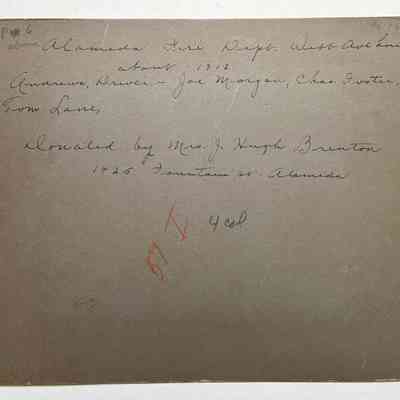 Pg 6
Alameda Fire Dept. Webb Ave
about 1912
Andrews, Driver - Joe Morgan, Chas. Foster,
Tom Lane,
Donated by Mrs. J. Hugh Brenton
1425 Fountain St. Alameda
4 col